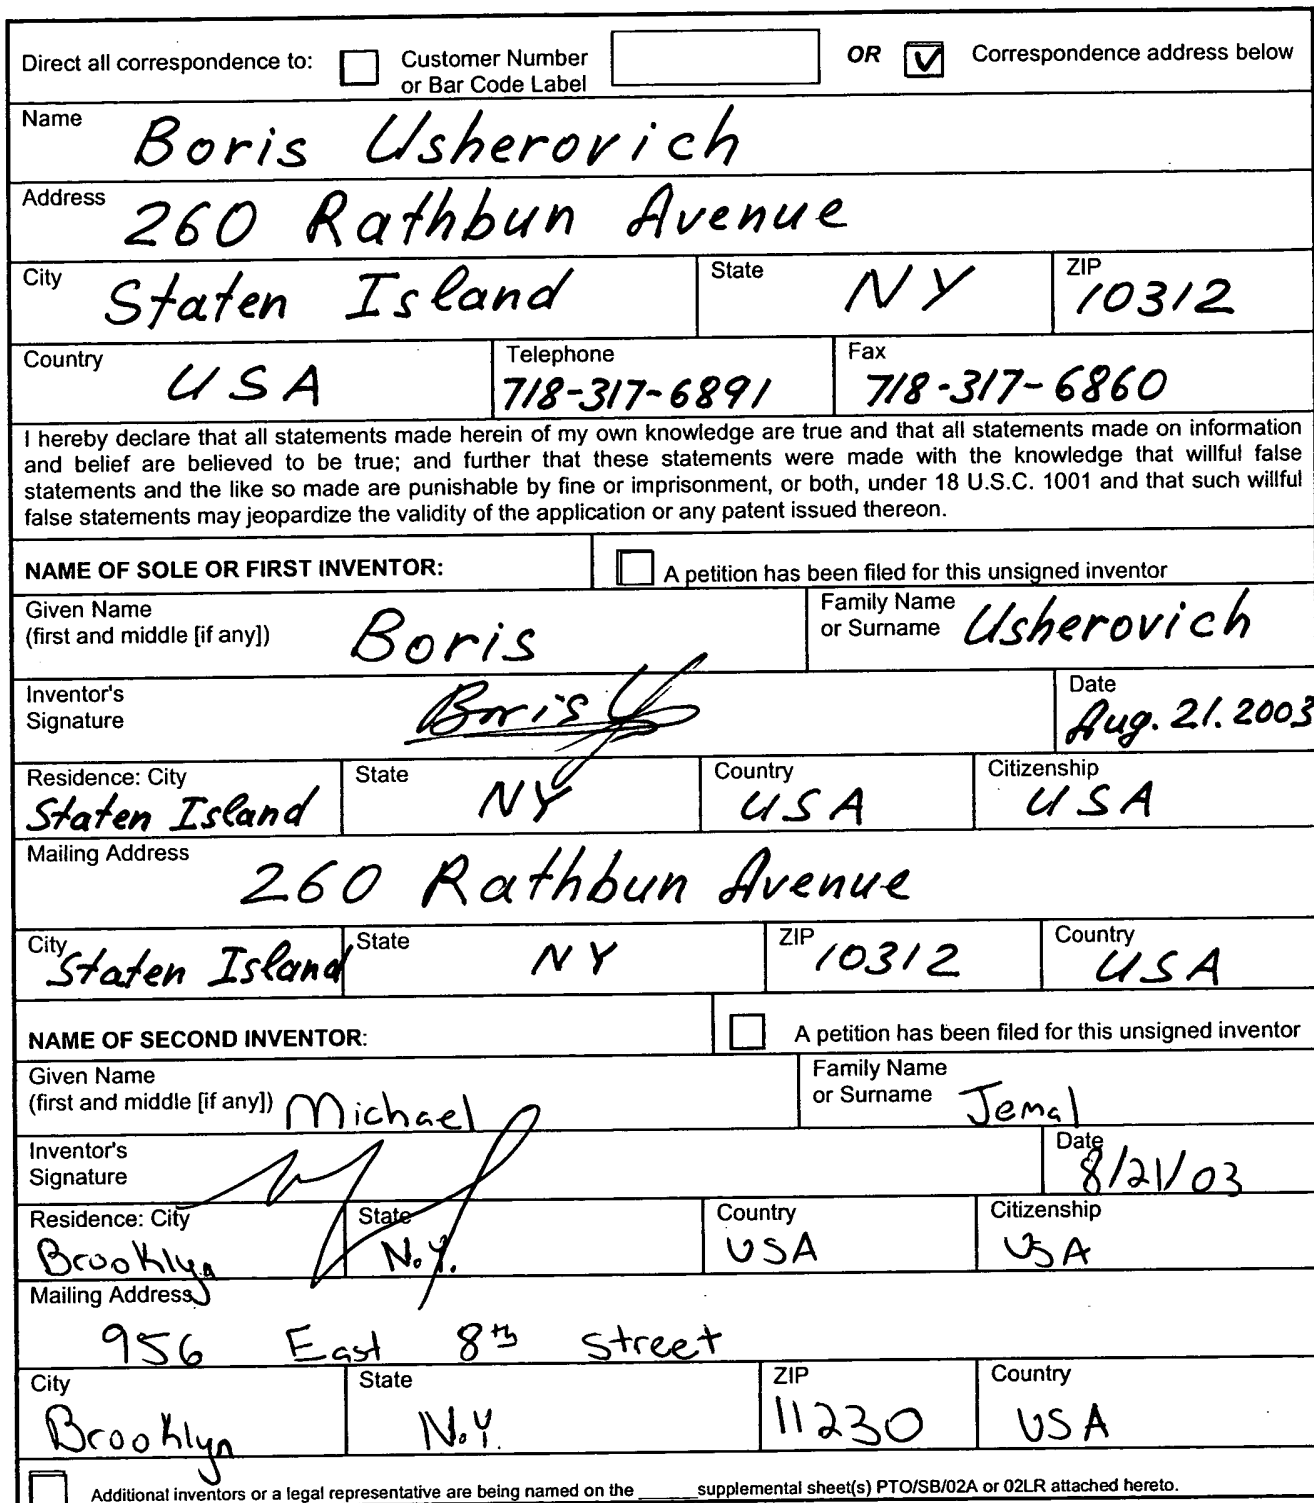 Direct all correspondence to: Customer Number or Bar Code Label OR Correspondence address below
Name Boris Usherovich
Address 260 Rathbun Avenue
City Staten Island State NY ZIP 10312
Country USA Telephone 718-317-6891 Fax 718-317-6860
I hereby declare that all statements made herein of my own knowledge are true and that all statements made on information
and belief are believed to be true; and further that these statements were made with the knowledge that willful false
statements and the like so made are punishable by fine or imprisonment, or both, under 18 U.S.C. 1001 and that such willful
false statements may jeopardize the validity of the application or any patent issued thereon.
NAME OF SOLE OR FIRST INVENTOR: A petition has been filed for this unsigned inventor
Given Name (first and middle [if any]) Boris Family Name or Surname Usherovich
Inventor's Signature Boris Date Aug. 21. 2003
Residence: City Staten Island State NY Country USA Citizenship USA
Mailing Address 260 Rathbun Avenue
City Staten Island State NY ZIP 10312 Country USA
NAME OF SECOND INVENTOR: A petition has been filed for this unsigned inventor
Given Name (first and middle [if any]) Michael Family Name or Surname Jemal
Inventor's Signature Date 8/21/03
Residence: City Brooklyn State N.Y. Country USA Citizenship USA
Mailing Address
956 East 8th Street
City Brooklyn State N.Y. ZIP 11230 Country USA
Additional inventors or a legal representative are being named on the ______supplemental sheet(s) PTO/SB/02A or 02LR attached hereto.